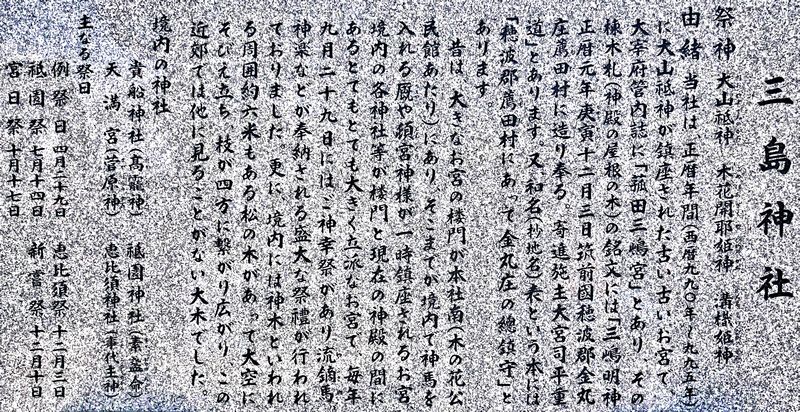 三島神社
祭神 大山祇神 木花開耶姫神 溝樴姫神
由緒 当社は、正暦年間(西暦九九〇年〜九九五年)
に大山祇神が鎮座された古い古いお宮で、
大宰府管内誌に「菰田三嶋宮」とあり、その
棟木札(神殿の屋根の木)の銘文には「三嶋明神
正暦元年庚寅十二月三日筑前國穂波郡金丸
庄鷹田村に造り奉る、寄進施主大宮司平重
道」とあります。又、和名抄(地名)表という本には
「穂波郡鷹田村にあって金丸庄の總鎮守」と
あります。
昔は、大きなお宮の楼門が本社南(木の花公
民館あたり)にあり、そこまでが境内で神馬を
入れる厩や頓宮神様が一時鎮座されるお宮
境内の各神社等が楼門と現在の神殿の間に
あるとてもとても大きく立派なお宮で、毎年
九月二十九日には、ご神幸祭があり流鏑馬
神楽などが奉納される盛大な祭禮が行われ
ておりました。更に、境内には神木といわれ
る周囲約六米もある松の木があって大空に
そびえ立ち、枝が四方に繋がり広がり、この
近郊では他に見ることがない大木でした。
境内の神社
貴船神社(高龗神) 祗園神社(素盞命)
天満宮(菅原神) 恵比須神社(事代主神)
主なる祭日
例祭日 四月二十九日 恵比須祭 十二月三日
祗園祭 七月十四日 新嘗祭 十二月十日
宮日祭 十月十七日